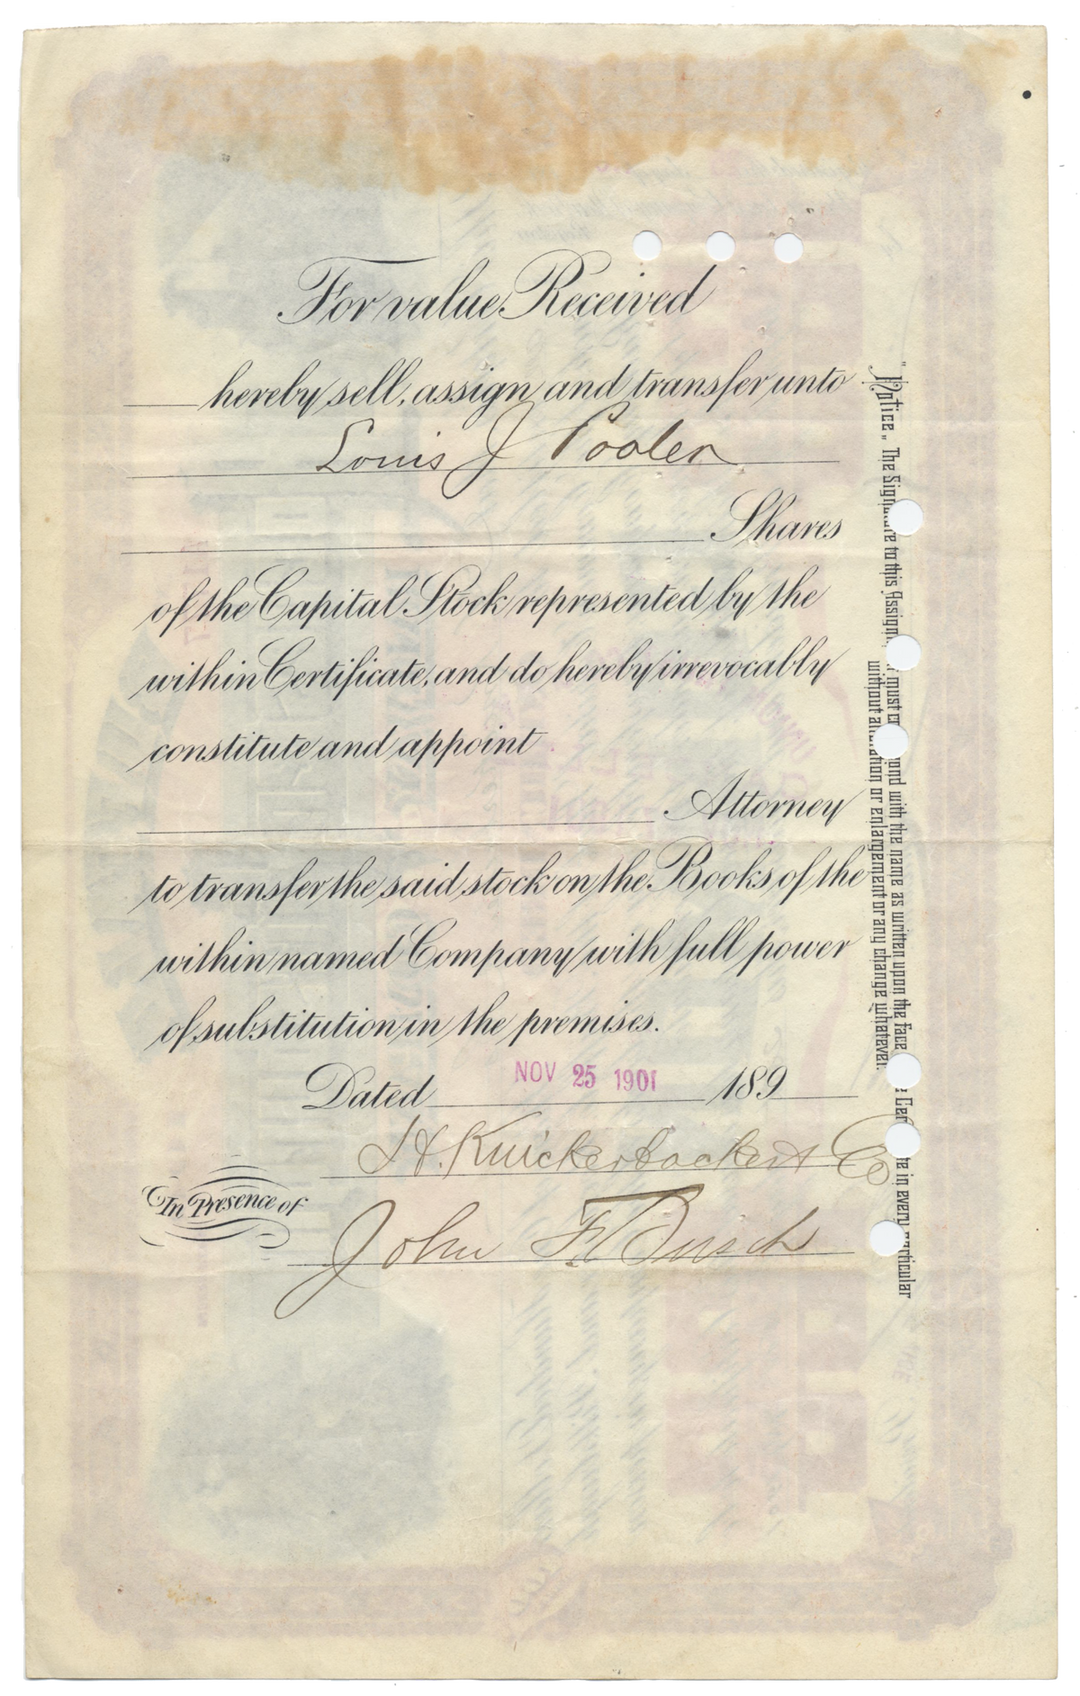 For value Received
hereby sell, assign and transfer unto
Louis J Poolen
Shares
of the Capital Stock represented by the
within Certificate, and do hereby irrevocably
constitute and appoint
Attorney
to transfer the said stock on the Books of the
within named Company with full power
of substitution in the premises.
Dated NOV 25 1901 189
H. Knickerbocker & Co
In Presence of
John F. Busch
"Notice." The Signature to this Assignment must and with the name as written upon the face Certificate in every particular
without alteration or enlargement or any change whatever.